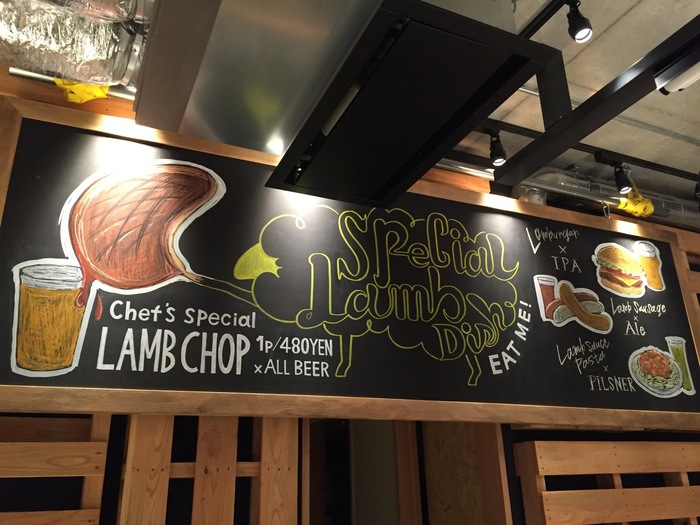 Chef's Special
LAMB CHOP
1p/480YEN
×ALL BEER
Special
Lamb
Dish
EAT ME!
Lamburger
×
IPA
Lamb Sausage
×
Ale
Lamb Sauce
Pasta
×
PILSNER